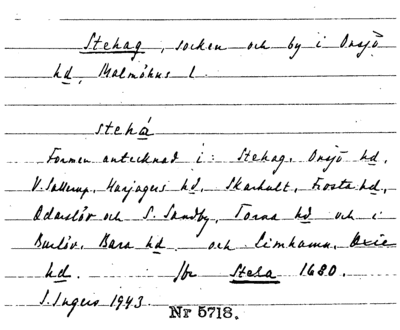 Stehag, socken och by i Onsjö
hd, Malmöhus l.
stehá
Formen antecknad i: Stehag, Onsjö hd,
V. Sallerup, Harjagers hd, Skarhult, Frosta hd,
Odarslöv och S. Sandby, Torna hd och i
Burlöv, Bara hd och Limhamn, Oxie
hd. Jbr Steha 1680.
I. Ingers 1943.
Nr 5718.